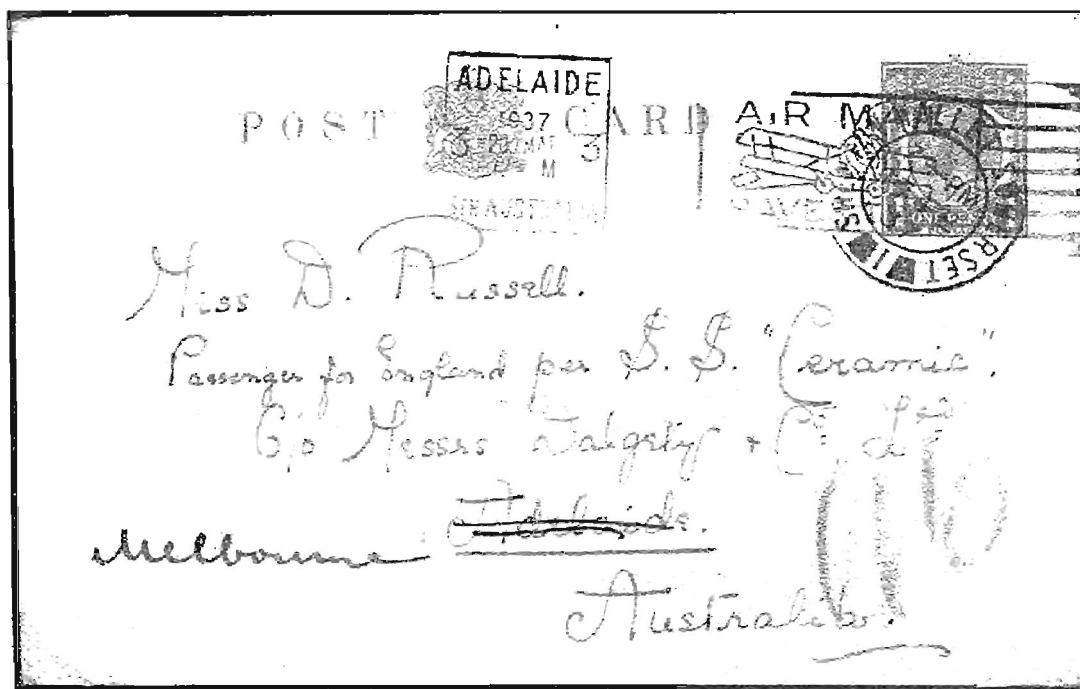 POST CARD
ADELAIDE
1937
3 3
M
STH AUSTRALIA
AIR MAIL
SAVE
ONE PENNY
RSET
Miss D. Russell.
Passenger for England per S.S. "Ceramic".
C/o Messrs Dalgety & Co. Ltd
Adelaide.
Melbourne
Australia.